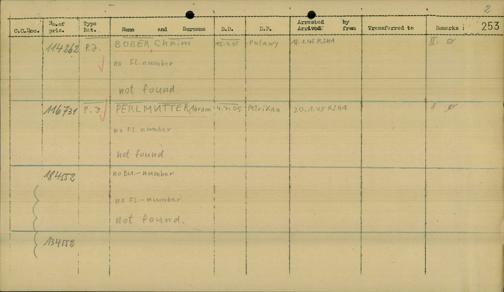 2
C.C.Doc. No.of pric. Type Det. Name and Surname D.B. P.B. Arrested Arrived by from Transferred to Remarks : 253
114262 P.J. BOBER Chaim Pulawy
no EL. number
not found
116731 P.J. PERLMUTTER Abram Petrikau 20.1.45
no EL number
not found
184552 no EL.-number
no EL-number
not found.
134552